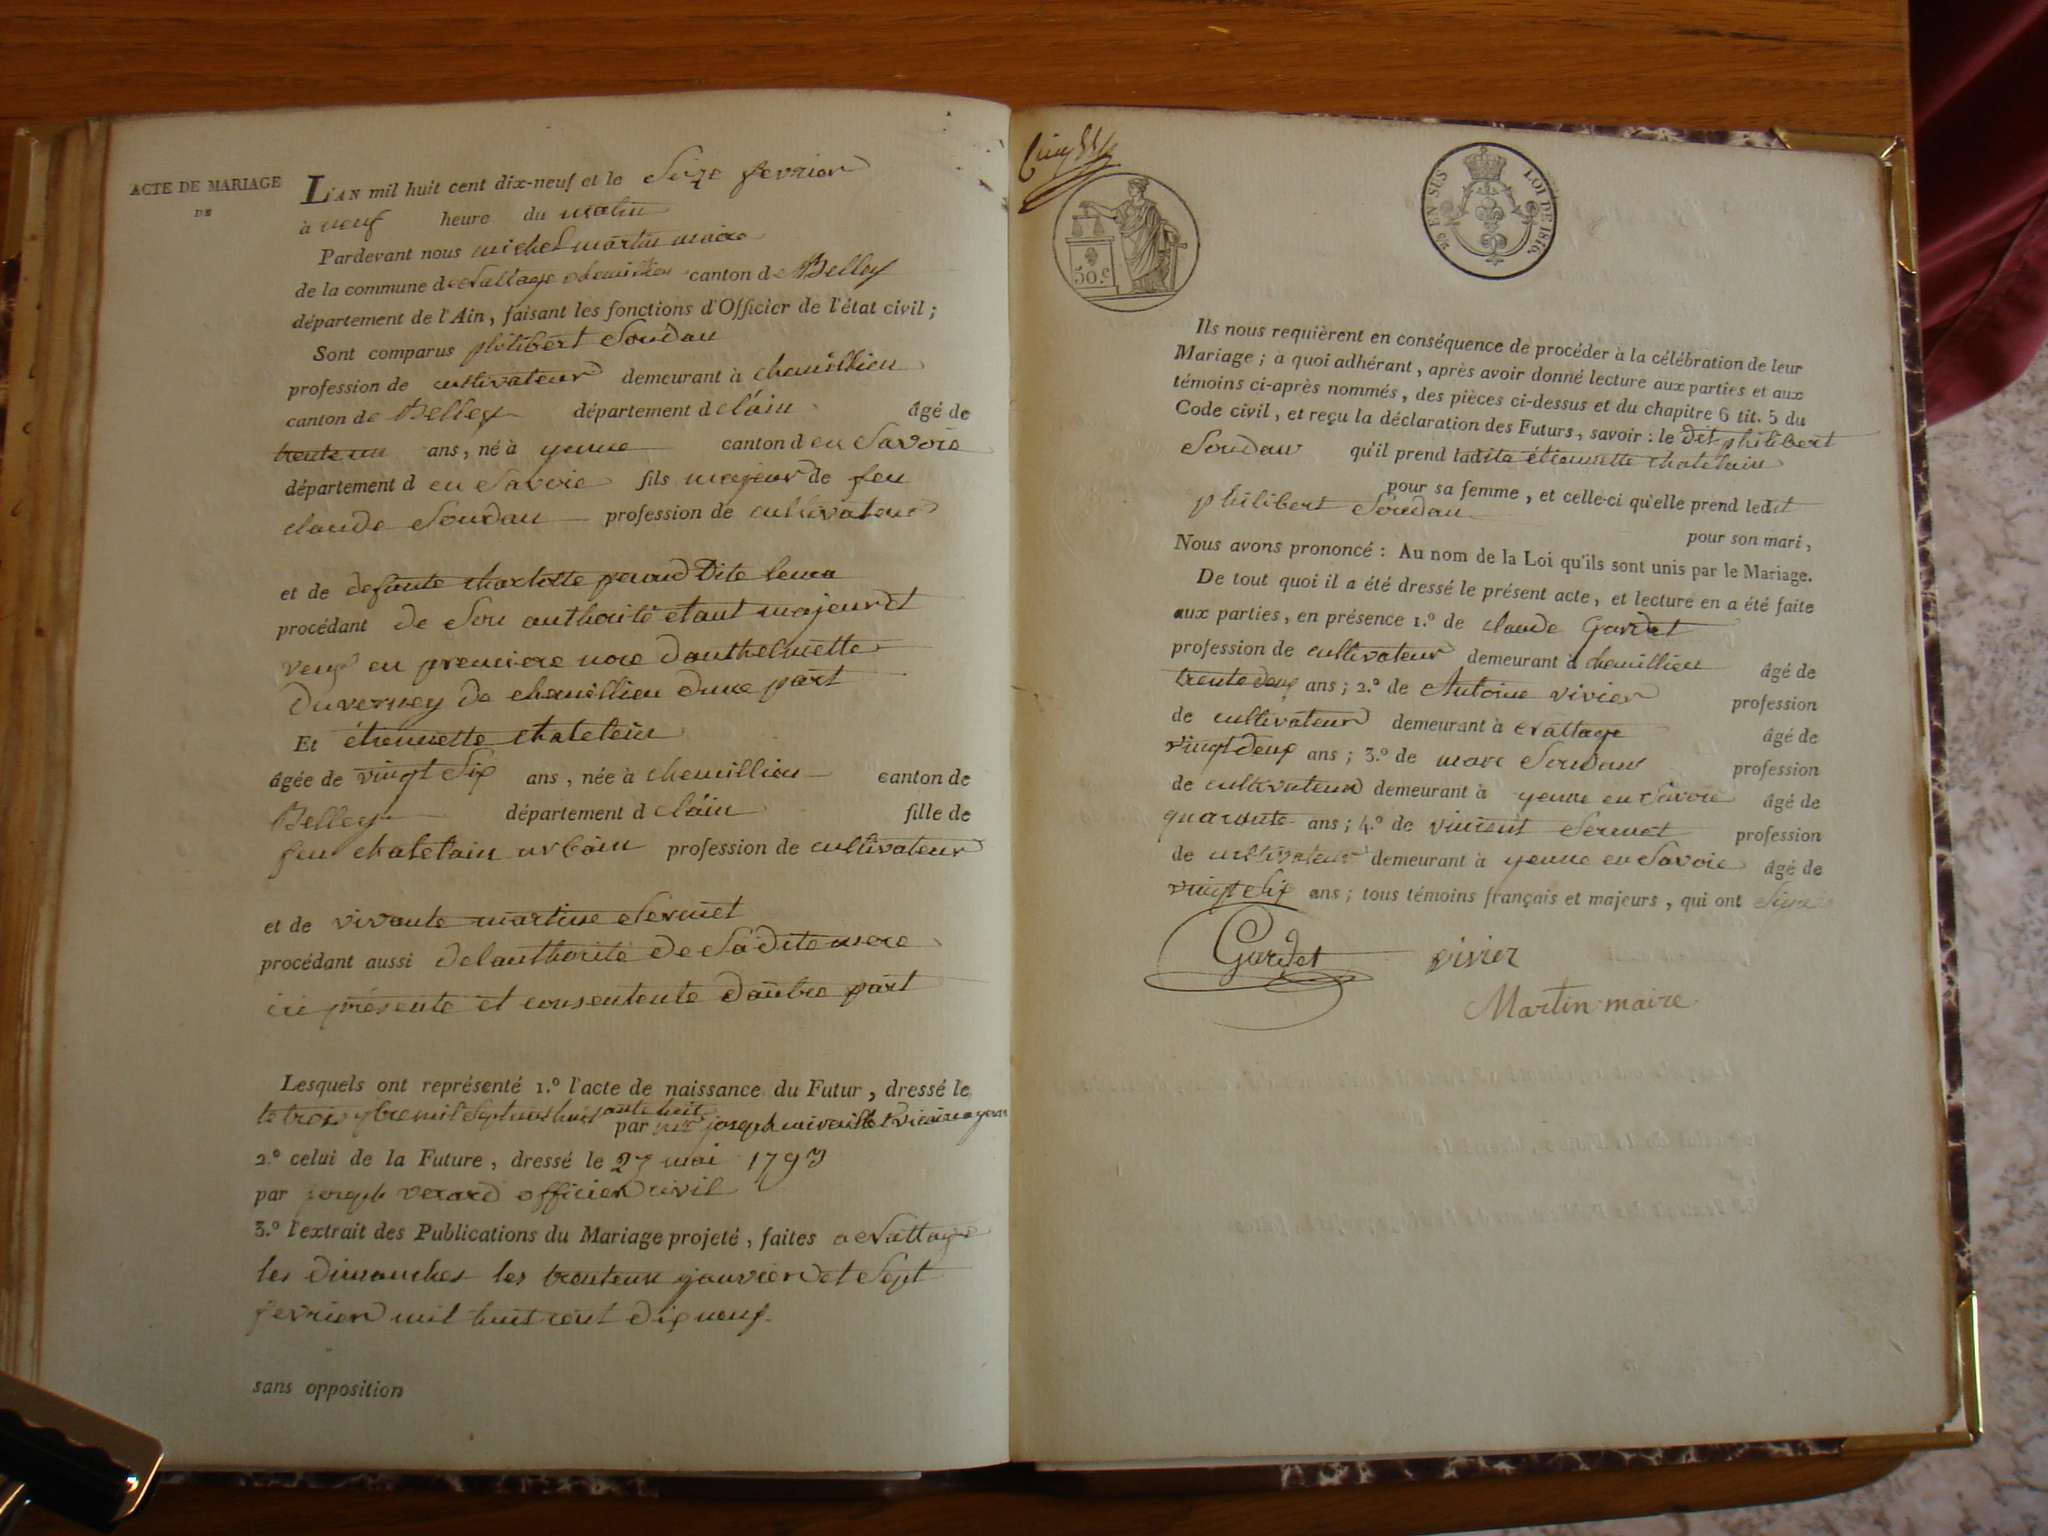 ACTE DE MARIAGE
DE
L'AN mil huit cent dix-neuf et le Seize fevrier
à neuf heure du matin
Pardevant nous michel martin maire
de la commune de canton de Belley
département de l'Ain, faisant les fonctions d'Officier de l'état civil;
Sont comparus philibert Soudan
profession de cultivateur demeurant à chemillieu
canton de Belley département d elain âgé de
trente un ans, né à yenne canton d en Savoie
département d en Savoie fils majeur de feu
claude Soudan profession de cultivateur
et de defunte charlotte dite
procédant de Son authorité etant majeur et
veuf en premiere noce danthelmette
Duverney de chemillieu dune part
Et étiennette chatelain
âgée de vingt Six ans, née à chemillieu canton de
Belley département d elain fille de
feu chatelain urbain profession de cultivateur
et de vivante martine Sermet
procédant aussi de lauthorité de Sadite mere
ici présente et consentente dautre part
Lesquels ont représenté 1.º l'acte de naissance du Futur, dressé le
le trois mil Sept cent huit ante huit
par joseph vicaire a yenne
2.º celui de la Future, dressé le 27 mai 1793
par joseph verard officier civil
3.º l'extrait des Publications du Mariage projeté, faites a
les dimanches les trenteun janvier et Sept
fevrier mil huit cent dix neuf.
sans opposition
50.c
25 EN SUS LOI DE 1816.
Ils nous requièrent en conséquence de procéder à la célébration de leur
Mariage; à quoi adhérant, après avoir donné lecture aux parties et aux
témoins ci-après nommés, des pièces ci-dessus et du chapitre 6 tit. 5 du
Code civil, et reçu la déclaration des Futurs, savoir: le dit philibert
Soudan qu'il prend ladite étiennette chatelain
pour sa femme, et celle-ci qu'elle prend ledit
philibert Soudan
pour son mari,
Nous avons prononcé: Au nom de la Loi qu'ils sont unis par le Mariage.
De tout quoi il a été dressé le présent acte, et lecture en a été faite
aux parties, en présence 1.º de claude Gardet
profession de cultivateur demeurant à chemillieu âgé de
trente deux ans; 2.º de Antoine vivier profession
de cultivateur demeurant à âgé de
vingt deux ans; 3.º de marc Soudan profession
de cultivateur demeurant à yenne en Savoie âgé de
quarante ans; 4.º de vincent Sermet profession
de cultivateur demeurant à yenne en Savoie âgé de
vingt Six ans; tous témoins français et majeurs, qui ont
Gardet vivier
Martin maire